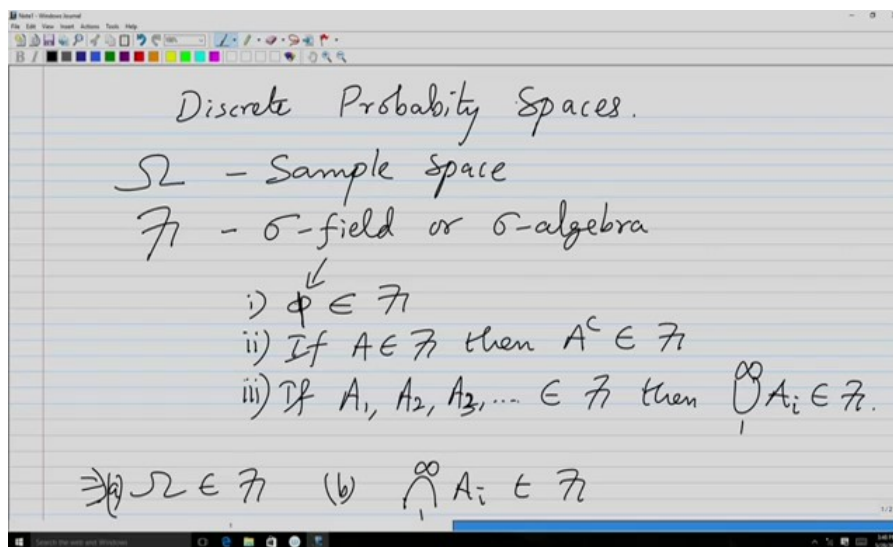 Note1 - Windows Journal
File Edit View Insert Actions Tools Help
Discrete Probabity Spaces.
Ω - Sample Space
ℱ - σ-field or σ-algebra
i) φ ∈ ℱ
ii) If A ∈ ℱ then A^c ∈ ℱ
iii) If A₁, A₂, A₃, .... ∈ ℱ then ∞∪1 Aᵢ ∈ ℱ.
⇒ (a) Ω ∈ ℱ (b) ∞∩1 Aᵢ ∈ ℱ
1/2
Search the web and Windows